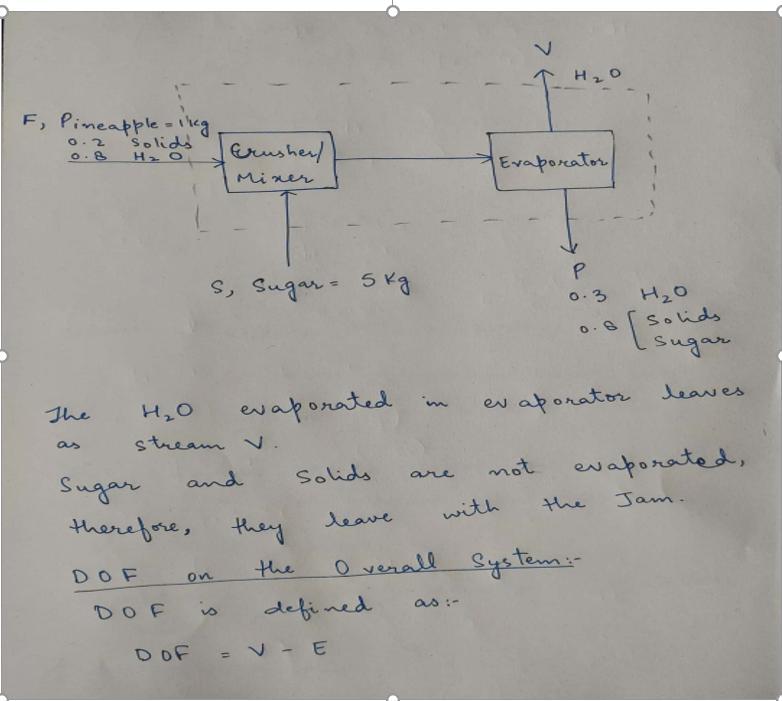 V
H₂O
F, Pineapple = 1 kg
0.2 Solids
0.8 H₂O
Crusher/
Mixer
Evaporator
S, Sugar = 5 Kg
P
0.3 H₂O
0.8 [ Solids
Sugar
The H₂O evaporated in evaporator leaves
as stream V.
Sugar and Solids are not evaporated,
therefore, they leave with the Jam.
DOF on the Overall System:-
DOF is defined as:-
DOF = V - E